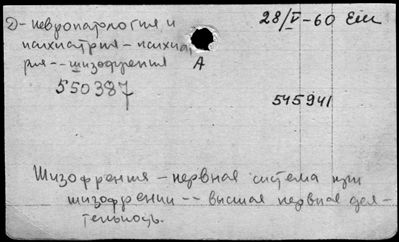 Д-невропатология и
28/V-60 Ели
психиатрия - психиат
рия -- шизофрения
А
550387
545941
Шизофрения - нервная система при
шизофрении -- высшая нервная дея-
тельность.